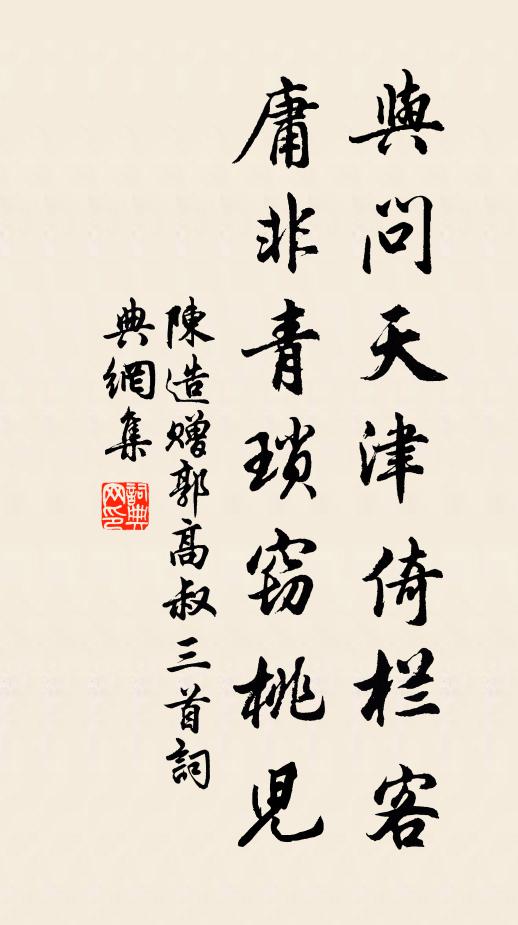 與問天津倚栏客
庸非青瑣窃桃児
陳造赠郭高叔三首詞
典網集
詞典
网印